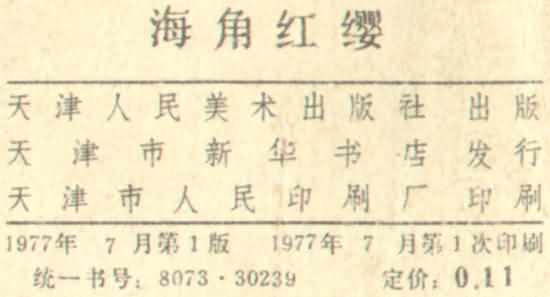 海角红缨
天津人民美术出版社 出版
天津市新华书店发行
天津市人民印刷厂 印刷
1977年 7月第1版 1977年 7 月第1次印刷
统一书号: 8073·30239 定价: 0.11